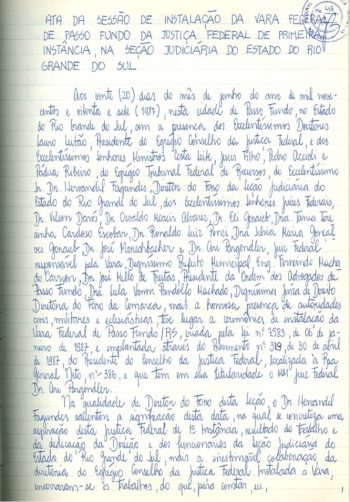 ATA DA SESSÃO DE INSTALAÇÃO DA VARA FEDERAL
DE PASSO FUNDO DA JUSTIÇA FEDERAL DE PRIMEIRA
INSTÂNCIA, NA SEÇÃO JUDICIÁRIA DO ESTADO DO RIO
GRANDE DO SUL.
Aos vinte (20) dias do mês de junho do ano de mil nove-
centos e oitenta e sete (1987), nesta cidade de Passo Fundo, no Estado
do Rio Grande do Sul, com a presença dos Excelentíssimos Doutores
Lauro Leitão, Presidente do Egrégio Conselho da Justiça Federal, e dos
Excelentíssimos Senhores Ministros Costa Leite, Pedro Acioli e
Pádua Ribeiro, do Egrégio Tribunal Federal de Recursos, do Excelentíssimo
Sr. Dr. Hervandil Fagundes, Diretor do Foro da Seção Judiciária do
Estado do Rio Grande do Sul, dos Excelentíssimos Senhores Juízes Federais,
Dr. Osvaldo Moacir Alvarez, Dr. Eli Goraieb, Dra. Tania Tere-
sinha Cardoso Escobar, Dr. Ronaldo Luiz Ponzi, Dra. Silvia Maria Gonçal-
ves Goraieb, Dr. José Morschbacher e Dr. Ari Pargendler, Juiz Federal
responsável pela Vara, Digníssimo Prefeito Municipal, Eng. Fernando Macha-
do Carrion, Dr. José Mello de Freitas, Presidente da Ordem dos Advogados de
Passo Fundo, Dra. Machado, Digníssima Juíza de Direito
Diretora do Foro da Comarca, mais a honrosa presença de autoridades
civis, militares e eclesiásticas, teve lugar a cerimônia de instalação da
Vara Federal de Passo Fundo/RS, criada pela lei nº 7583, de 06 de ja-
neiro de 1987, e implantada através do Provimento nº 319, de 30 de abril
de 1987, do Presidente do Conselho da Justiça Federal, localizada à Rua
General Neto, nº 386, e que tem em sua titularidade o MM. Juiz Federal
Dr. Ari Pargendler.
Na qualidade de Diretor do Foro desta Seção, o Dr. Hervandil
Fagundes salientou a significação desta data, na qual se concretiza uma
aspiração desta Justiça Federal de 1ª Instância, resultado do trabalho e
da dedicação da Direção e dos funcionários da Seção Judiciária do
Estado do Rio Grande do Sul, mais a inestimável colaboração da
diretoria do Egrégio Conselho da Justiça Federal. Instalada a Vara,
encerraram-se os trabalhos, do que, para constar eu,